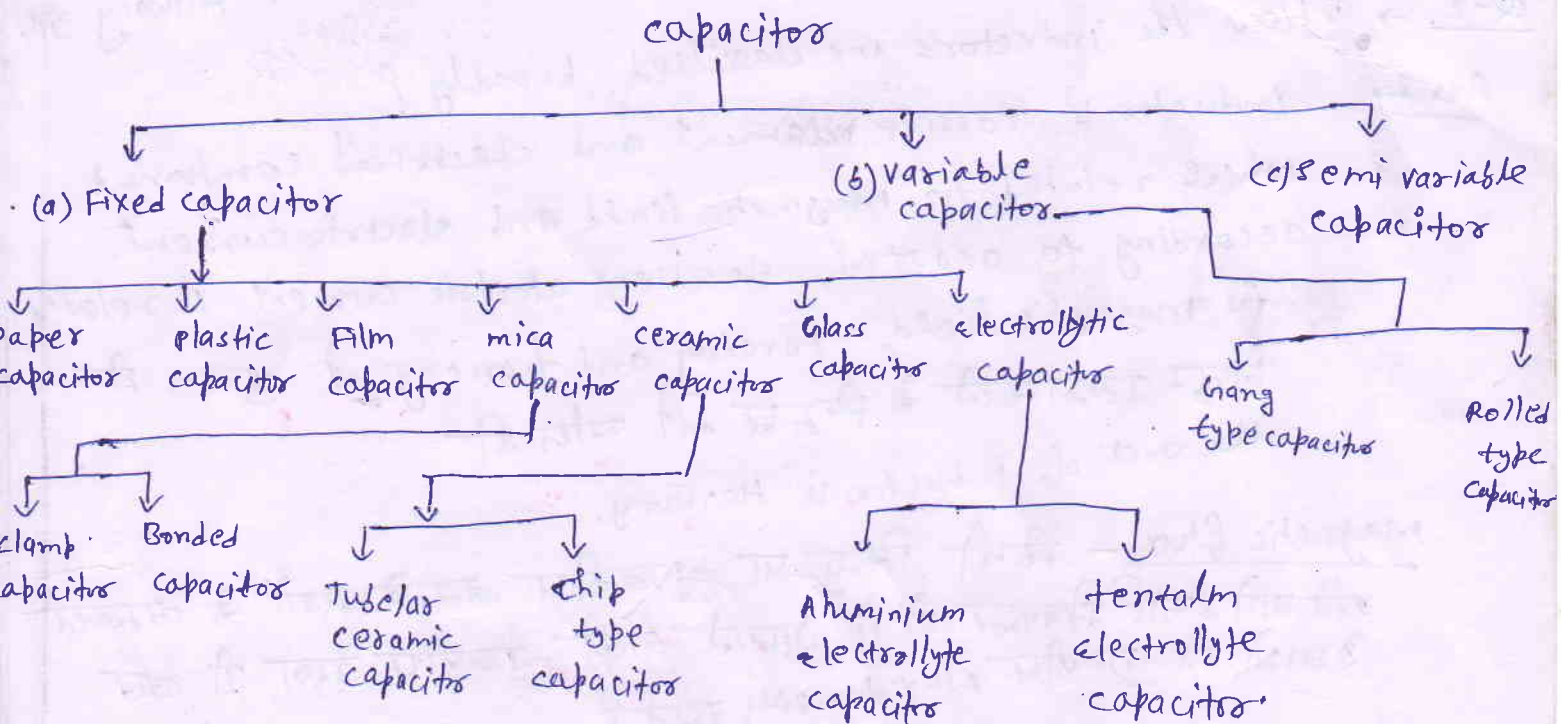 capacitor
(a) Fixed capacitor
(b) variable
capacitor
(c) Semi variable
capacitor
Paper
capacitor
plastic
capacitor
Film
capacitor
mica
capacitor
ceramic
capacitor
Glass
capacitor
electrollytic
capacitor
Gang
type capacitor
Rolled
type
Capacitor
clamp
capacitor
Bonded
capacitor
Tubclar
ceramic
capacitor
chip
type
capacitor
Aluminium
electrollyte
capacitor
tentalm
electrollyte
capacitor.